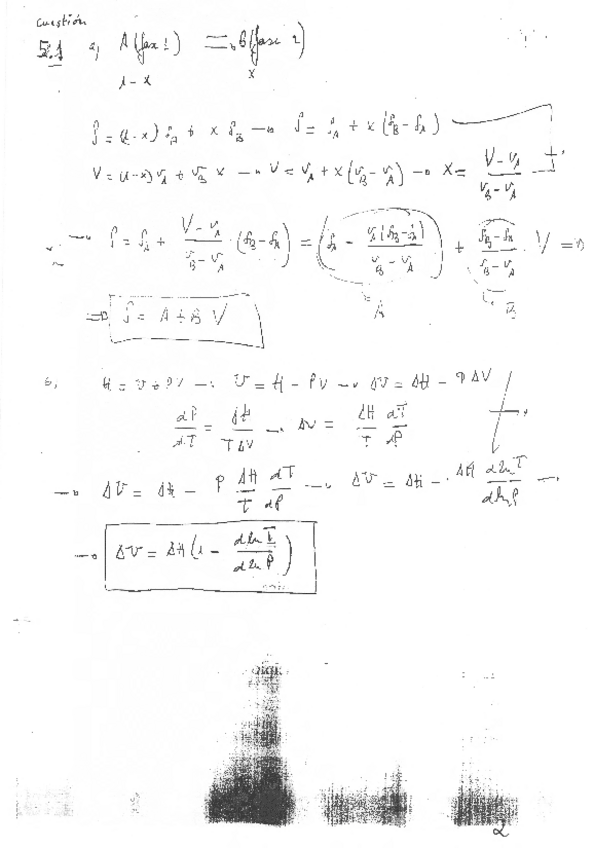 Cuestión
5.1 a, A (fase 1) ⇒ B (fase 2)
1-x x
S = (1-x) s_A + x s_B → S = s_A + x (s_B - s_A)
V = (1-x) v_A + v_B x → V = v_A + x (v_B - v_A) → x = (V - v_A)/(v_B - v_A)
→ S = s_A + (V - v_A)/(v_B - v_A) · (s_B - s_A) = (s_A - v_A (s_B - s_A)/(v_B - v_A)) + (s_B - s_A)/(v_B - v_A) · V ⇒
A B
⇒ S = A + B V
b, H = U + PV → U = H - PV → ΔU = ΔH - P ΔV
dP/dT = ΔH/(T ΔV) → ΔV = ΔH/T dT/dP
→ ΔU = ΔH - P ΔH/T dT/dP → ΔU = ΔH - ΔH d ln T/d ln P →
→ ΔU = ΔH (1 - d ln T/d ln P)
2